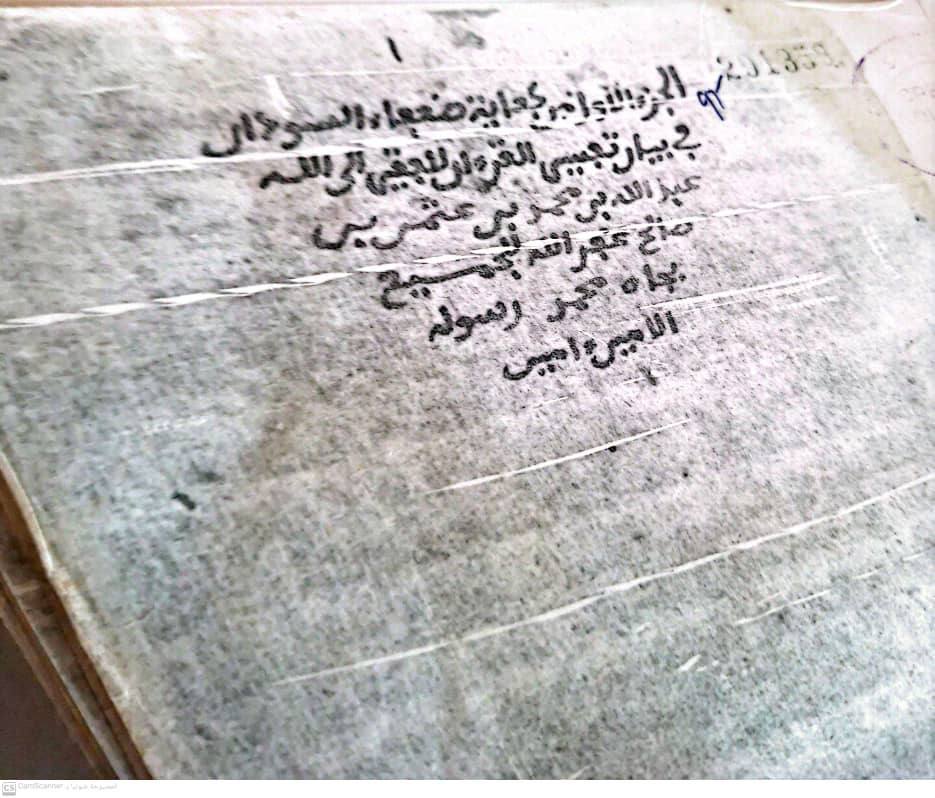 ١
291358
الجزء الأول من كفاية ضعفاء السودان
في بيان تفسير القرءان للفقير الى الله
عبد الله بن محمد بن عثمن بن
صالح غفر الله لجميع
بجاه محمد رسوله
الامين ءامين
CS CamScanner